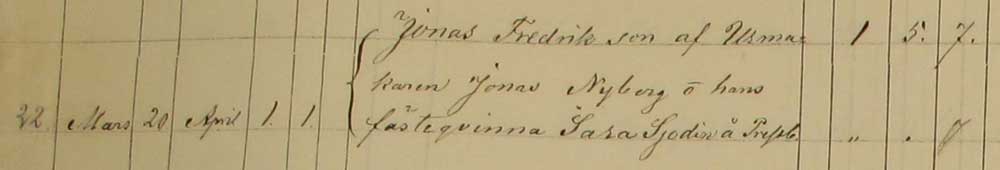 Jonas Fredrik son af Urma= 1 5. 7.
karen Jonas Nyberg ō hans
22 Mars 20 April 1. 1. fästeqvinna Sara Sjödin å Prestb. „ .